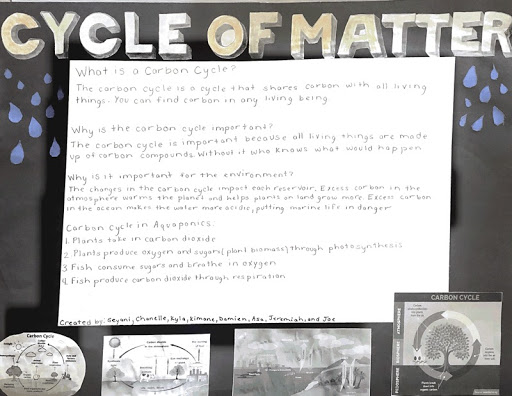 CYCLE OF MATTER
What is a Carbon Cycle?
The carbon cycle is a cycle that shares carbon with all living
things. You can find carbon in any living being.
Why is the carbon cycle important?
The carbon cycle is important because all living things are made
up of carbon compounds. Without it who knows what would happen
Why is it important for the environment?
The changes in the carbon cycle impact each reservoir. Excess carbon in the
atmosphere warms the planet and helps plants on land grow more. Excess carbon
in the ocean makes the water more acidic, putting marine life in danger
Carbon Cycle in Aquaponics:
1. Plants take in carbon dioxide
2. Plants produce oxygen and sugars (plant biomass) through photosynthesis
3 Fish consume sugars and breathe in oxygen
4. Fish produce carbon dioxide through respiration
Created by: Seyani, Chanelle, Kyla, Kimane, Damien, Asa, Jeremiah, and Joe
Carbon Cycle
CARBON CYCLE
ATMOSPHERE